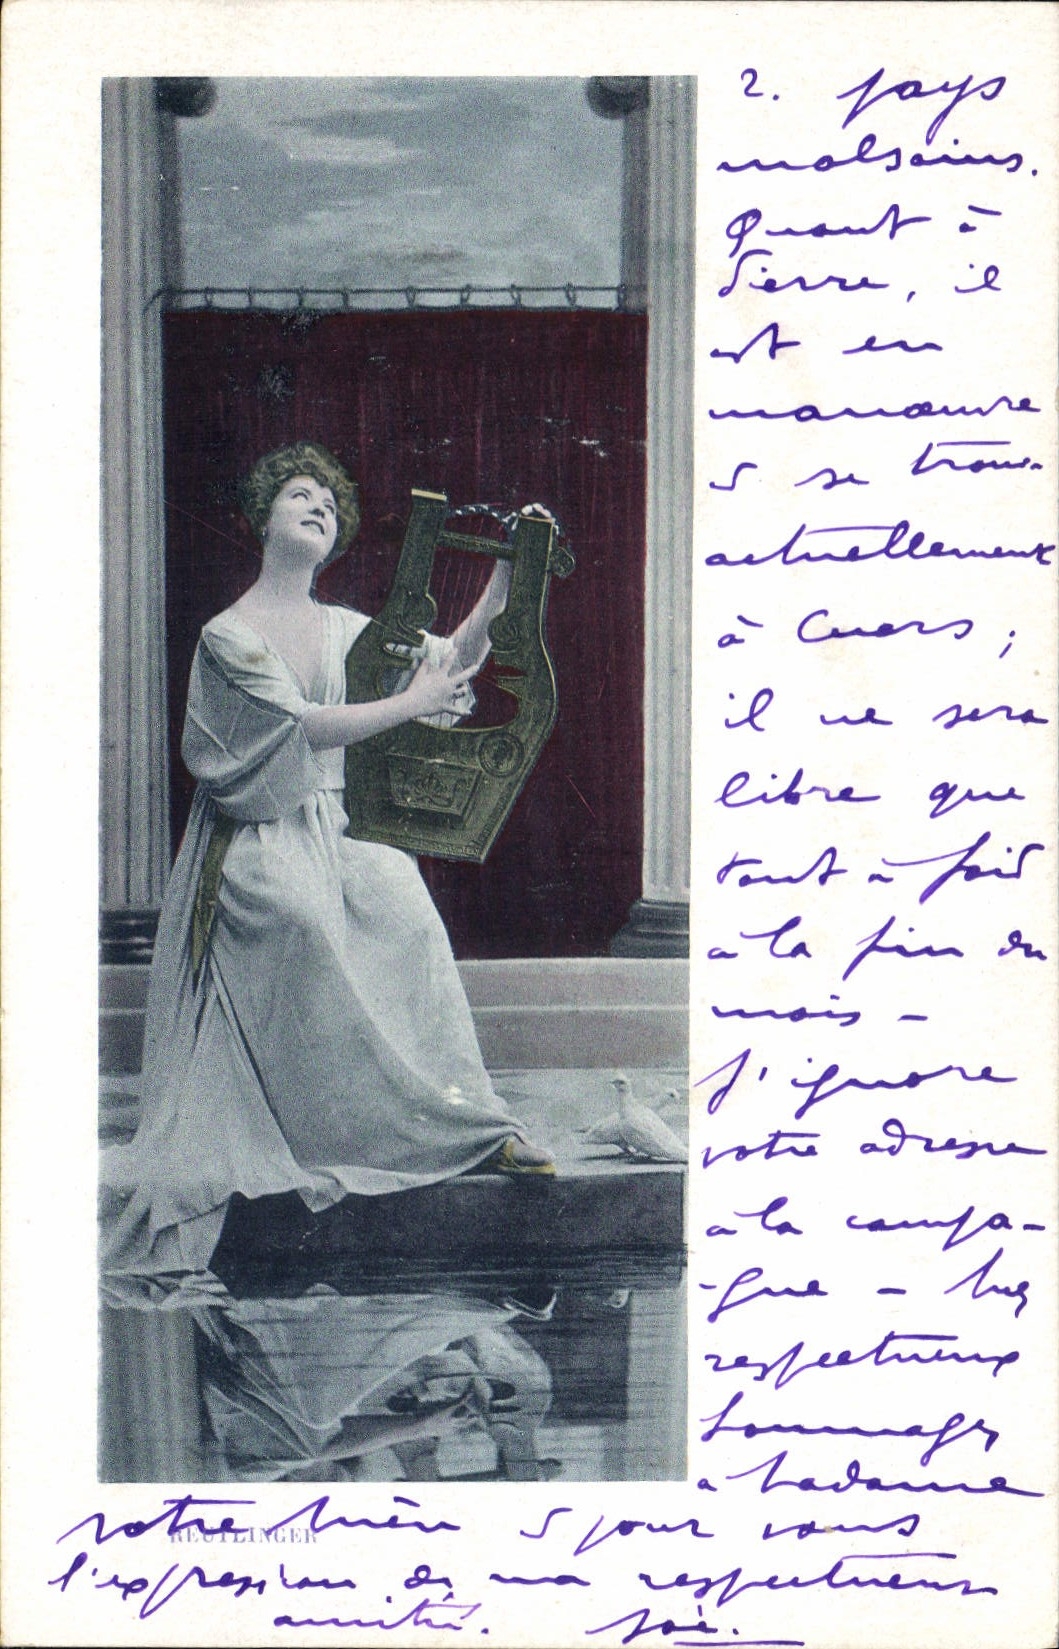 2. pays
malsains.
Quant à
Pierre, il
est en
manœuvre
& se trouve
actuellement
à Cuers ;
il ne sera
libre que
tout à fait
à la fin du
mois -
J'ignore
votre adresse
à la campa-
-gne - Mes
respectueux
hommages
à Madame
votre Mère & pour vous
REUTLINGER
l'expression de ma respectueuse
amitié.